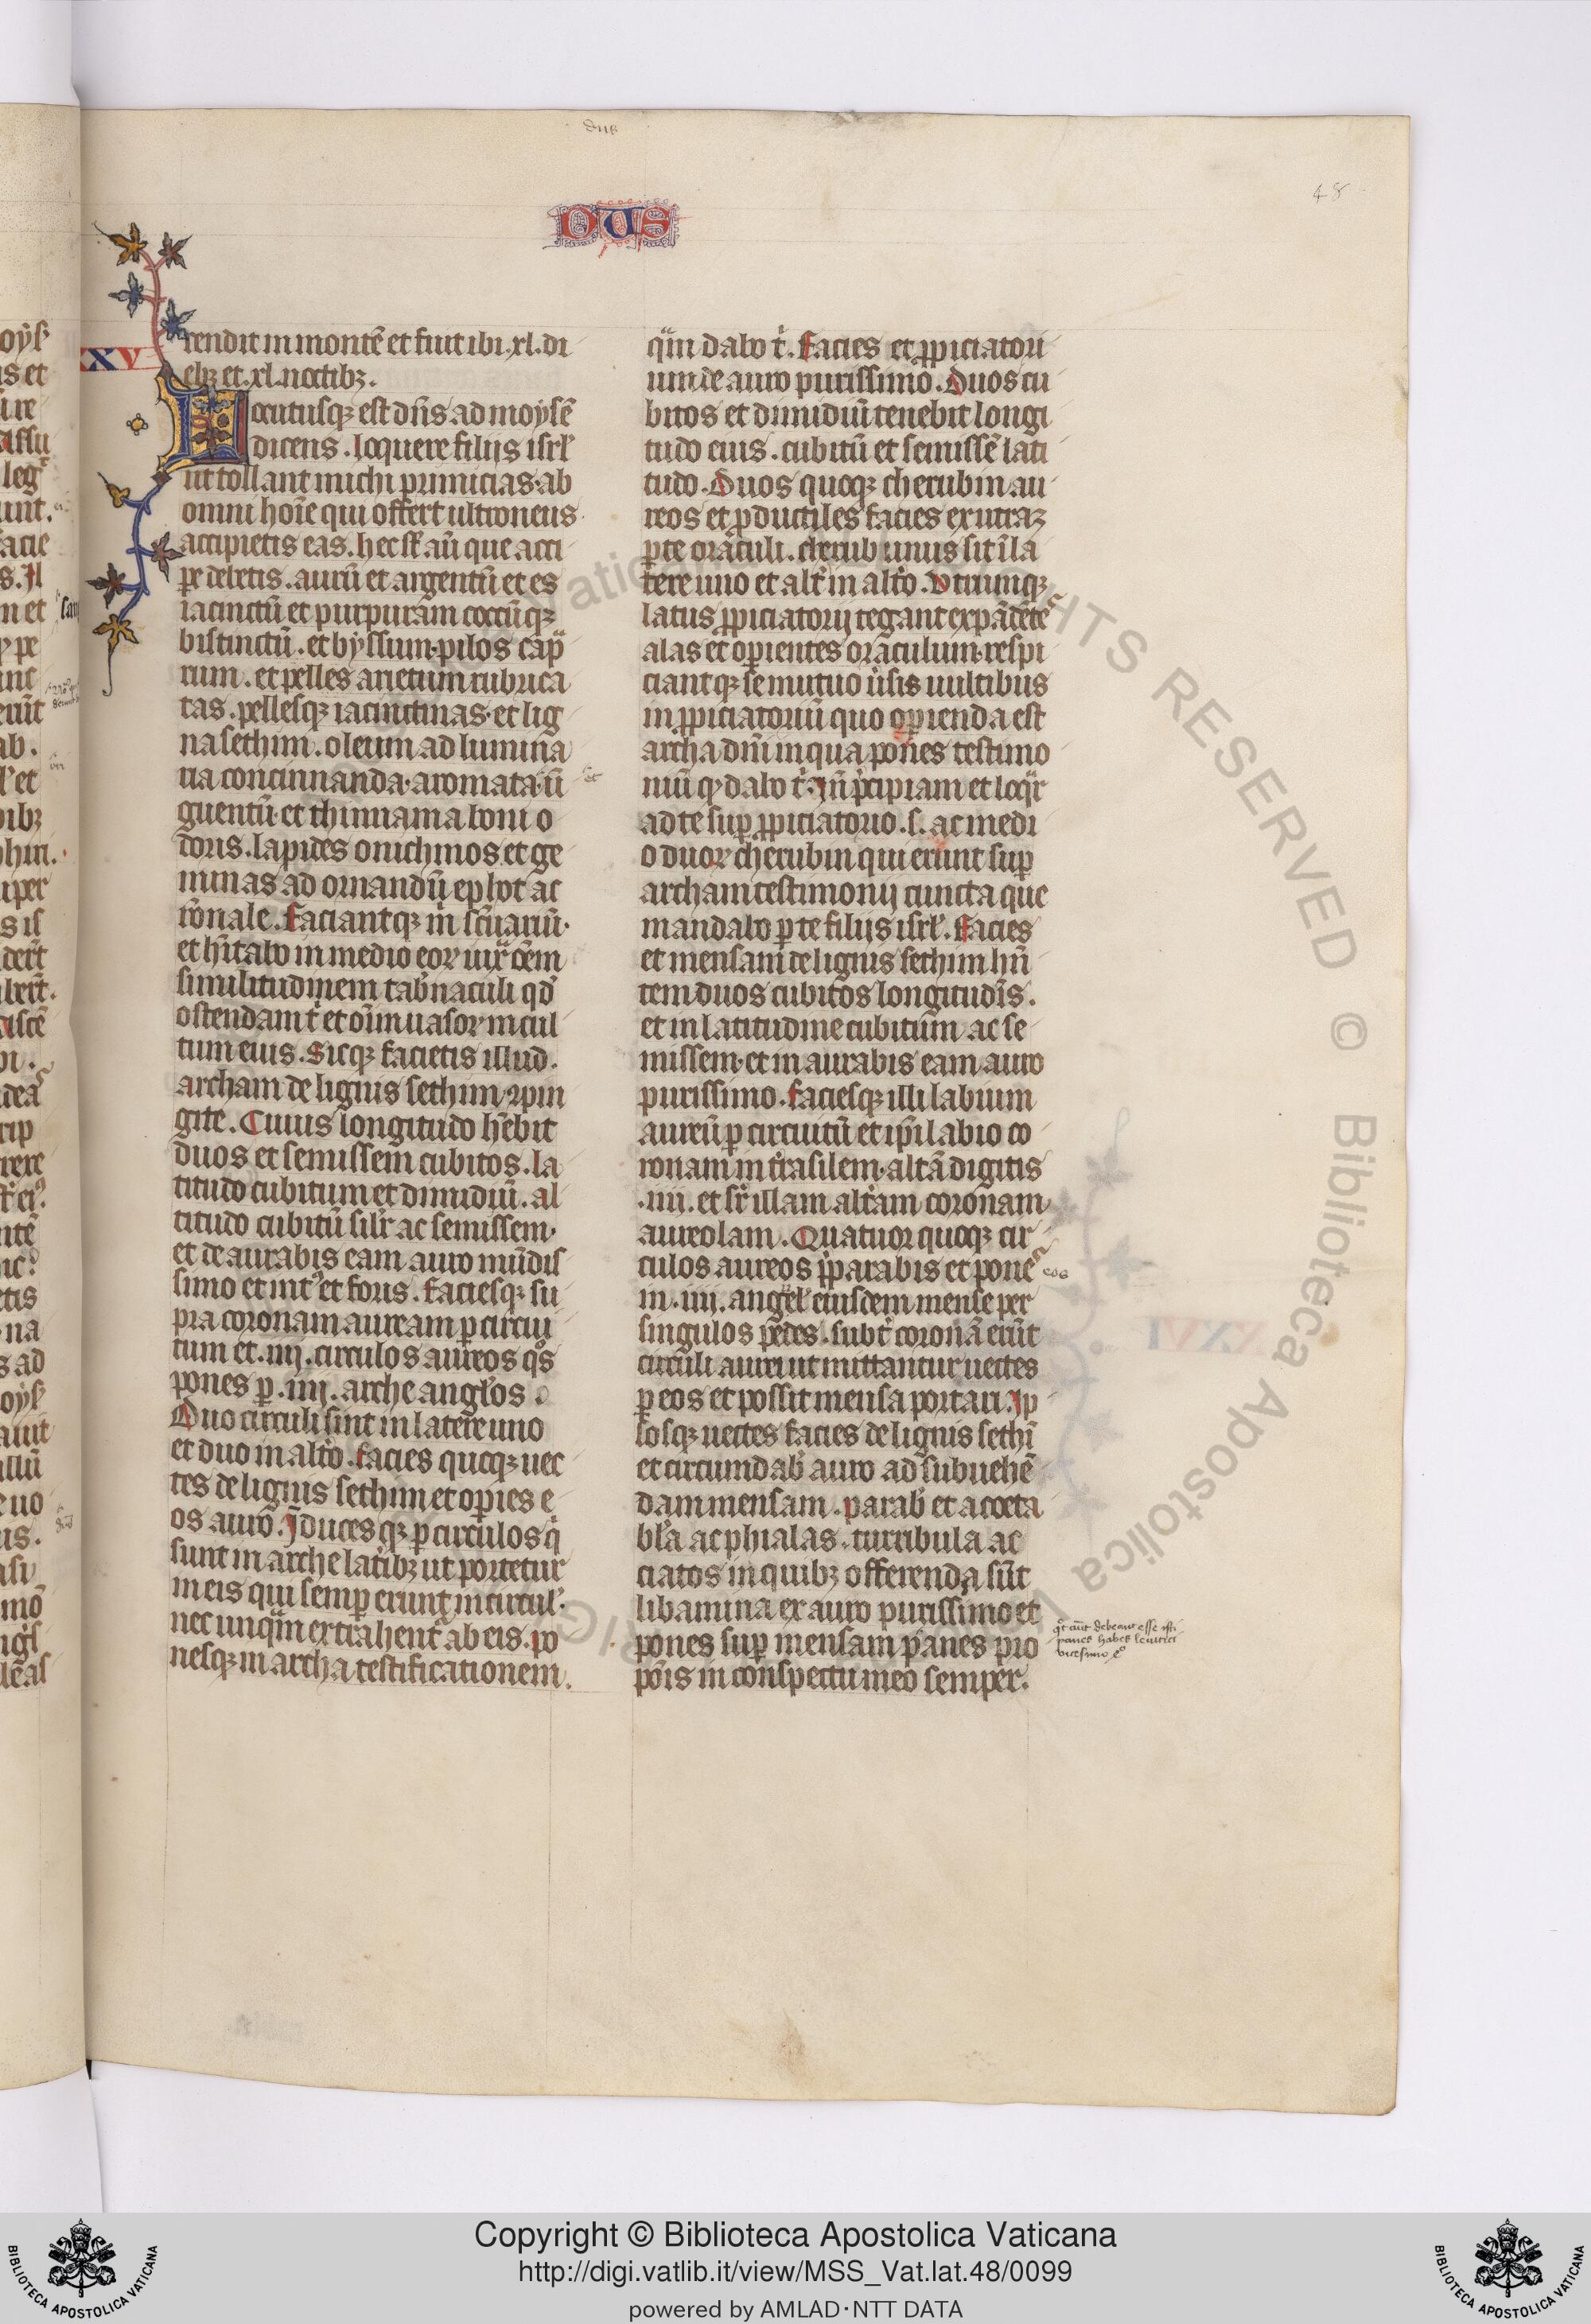 dus
48
DUS
XXV
cendit in montē et fuit ibi .xl. di
ebꝫ et .xl. noctibꝫ.
Locutusqꝫ est dn̄s ad moysē
dicens . loquere filijs isrl̓
ut tollant michi primicias ab
omni hoīe qui offert ultroneus
accipietis eas . hec sт̄ aū que acci
pe debetis . aurū et argentū et es
iacinctū et purpuram coccūqꝫ
bistinctū . et byssum . pilos cap
rum . et pelles arietum rubrica
tas . pellesqꝫ iacinctinas . et lig
na sethim . oleum ad lumina
ria concinnanda . aromata ī ū
guentū et thimiama boni o
doris . lapides onichinos et ge
mmas ad ornandū ephot ac
rōnale . Faciantqꝫ m̄ scūariū .
et hītabo in medio eoꝝ iux̄ oēm
similitudinem tab̓naculi qd̓
ostendam t̓ et oīm uasoꝝ in cul
tum eius . Sicqꝫ facietis illud .
archam de lignis sethim ꝯpin
gite . Cuius longitudo hēbit
duos et semissem cubitos . la
titudo cubitum et dimidiū . al
titudo cubitū silr̓ ac semissem .
et deaurabis eam auro mūdis
simo et int̓ et foris . faciesqꝫ su
pra coronam auream ꝑ circui
tum et .iiij. circulos aureos qͦs
pones ꝑ .iiij. arche angl̓os .
Duo circuli sint in latere uno
et duo in alto̓ . facies quoqꝫ uec
tes de lignis sethim et oꝑies e
os auro . Īducesqꝫ ꝑ circulos q̓
sunt in arche lat̓ibꝫ ut portetur
in eis qui semꝑ erunt in circul̓ .
nec unqͣm extrahent̓ ab eis . po
nesqꝫ in archa testificationem .
qͣm dabo t̓ . Facies et ꝓpiciatori
um de auro purissimo . Duos cu
bitos et dimidiū tenebit longi
tudo eius . cubitū et semissē lati
tudo . Duos quoqꝫ cherubin au
reos et ꝓductiles facies ex utraqꝫ
ꝑte oraculi . cherub unus sit ī la
tere uno et alt̓ in alto̓ . Vtrumqꝫ
latus ꝓpiciatorij tegant expādētes
alas et oꝑientes oraculum . respi
ciantqꝫ se mutuo ūsis uultibus
in ꝓpiciatoriū quo oꝑienda est
archa dn̄i in qua pones testimo
niū qͦ dabo t̓ . Iñ p̓cipiam et loqͣr
ad te suꝑ ꝓpiciatorio .s. ac medi
o duoꝝ cherubin qui erunt suꝑ
archam testimonij cuncta que
mandabo ꝑ te filijs isrl̓ . Facies
et mensam de lignis sethim hn̄
tem duos cubitos longitudīs .
et in latitudine cubitum ac se
missem . et inaurabis eam auro
purissimo . faciesqꝫ illi labium
aureū ꝑ circuitū et ip̄i labio co
ronam int̓rasilem . altā digitis
.iiij. et sr̓ illam alt̓am coronam
aureolam . Quatuor quoqꝫ cir
culos aureos p̓parabis et pones
eos
in .iiij. angl̓ eiusdem mense per
singulos pedes . subt̓ coronā erūt
circuli aurei ut mittantur uectes
ꝑ eos et possit mensa portari . Ip
sosqꝫ uectes facies de lignis sethī
et circumdab̓ auro ad subuehē
dam mensam . parab̓ et aceta
bl̓a ac phialas . turribula ac
ciatos in quibꝫ offerenda sūt
libamina ex auro purissimo et
pones suꝑ mensam panes pro
pōis in conspectu meo semper .
panes habes leuitici
Copyright © Biblioteca Apostolica Vaticana
http://digi.vatlib.it/view/MSS_Vat.lat.48/0099
powered by AMLAD·NTT DATA
BIBLIOTECA APOSTOLICA VATICANA
BIBLIOTECA APOSTOLICA VATICANA